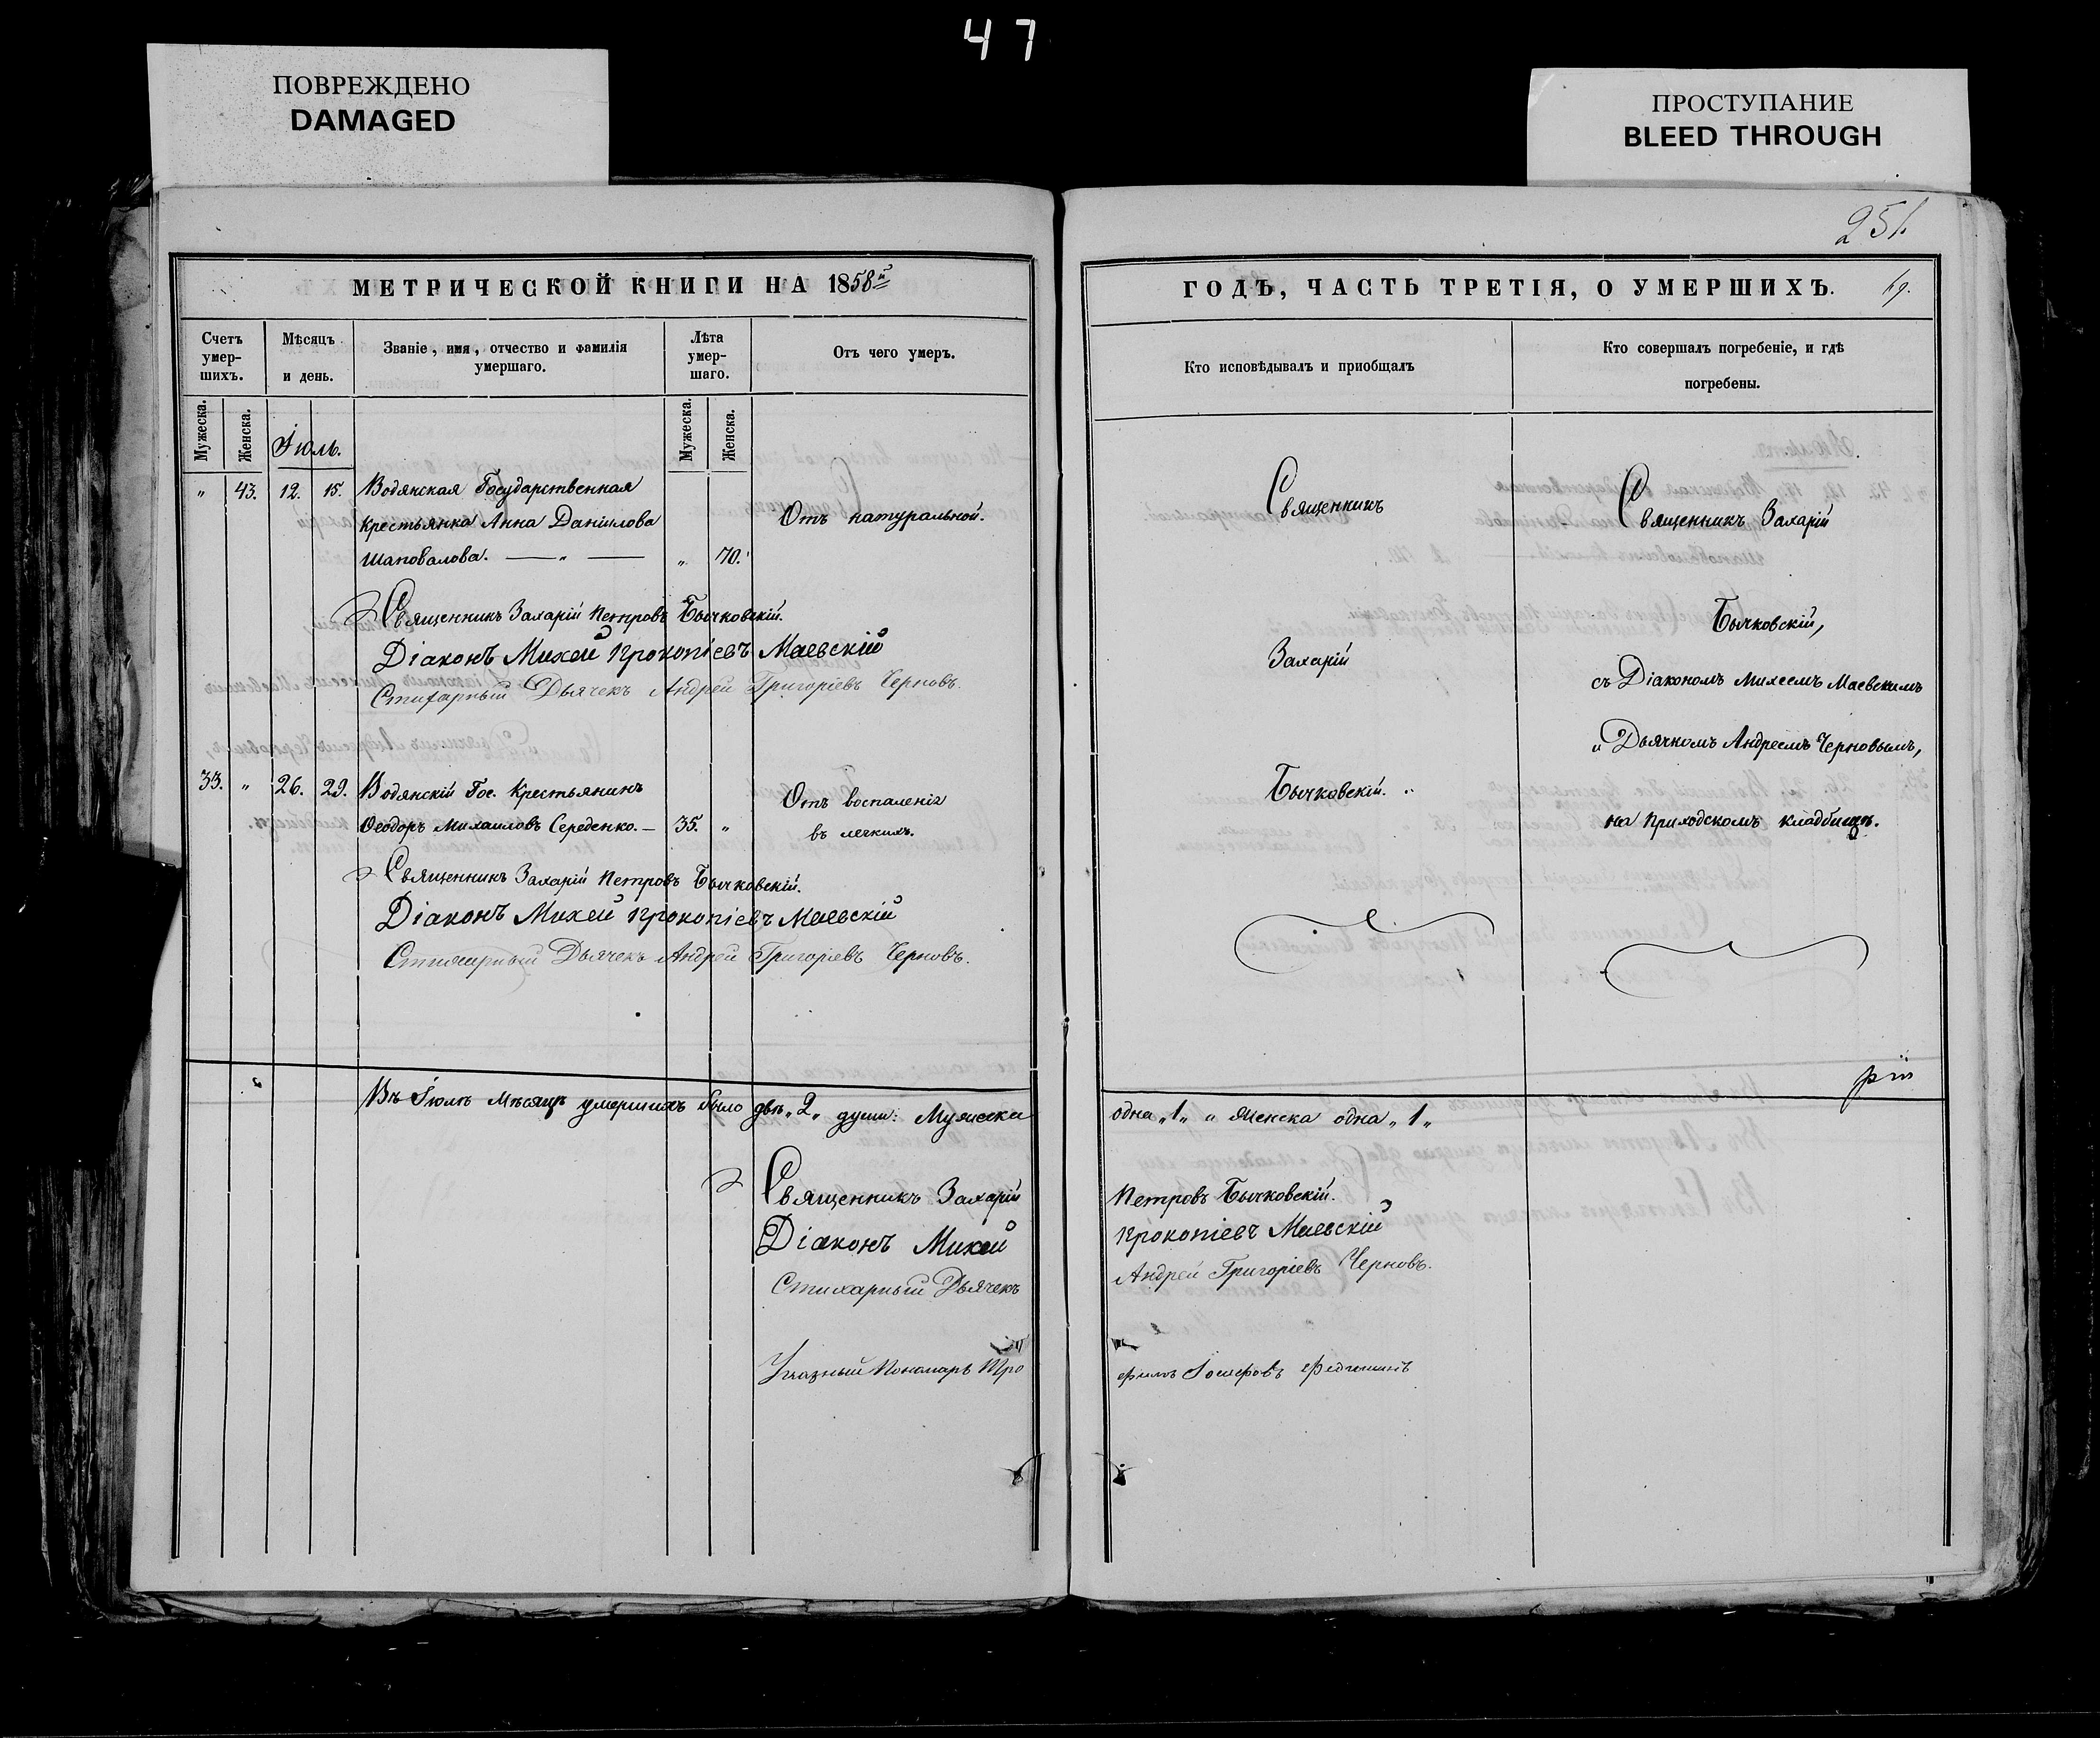 47
ПОВРЕЖДЕНО
DAMAGED
ПРОСТУПАНИЕ
BLEED THROUGH
251.
МЕТРИЧЕСКОЙ КНИГИ НА 1858й
Счетъ умер- шихъ.
Мѣсяцъ и день.
Званіе, имя, отчество и фамилія умершаго.
Лѣта умер- шаго.
Отъ чего умеръ.
Мужеска.
Женска.
Іюль.
Мужеска.
Женска.
„ 43. 12. 15. Водянская Государственная
крестьянка Анна Даніилова
Шаповалова. — „ — „ 70.
Отъ натуральной.
Священникъ Захарій Петровъ Бычковскій.
Діаконъ Михей Прокопіевъ Маевскій
Стихарный Дьячекъ Андрей Григоріевъ Черновъ.
33. „ 26. 29. Водянскій Гос. Крестьянинъ
Ѳеодоръ Михаиловъ Середенко. — 35. „
Отъ воспаленія
въ легкихъ.
Священникъ Захарій Петровъ Бычковскій.
Діаконъ Михей Прокопіевъ Маевскій
Стихарный Дьячекъ Андрей Григоріевъ Черновъ.
Въ Іюлѣ Мѣсяцѣ умершихъ было двѣ „2„ души: Мужеска
Священникъ Захарій
Діаконъ Михей
Стихарный Дьячекъ
Указный Пономарь Тро
ГОДЪ, ЧАСТЬ ТРЕТІЯ, О УМЕРШИХЪ. 69.
Кто исповѣдывалъ и пріобщалъ
Кто совершалъ погребеніе, и гдѣ
погребены.
Священникъ
Захарій
Бычковскій.
Священникъ Захарій
Бычковскій,
съ Діакономъ Михеемъ Маевскимъ
и Дьячкомъ Андреемъ Черновымъ,
на приходскомъ кладбищѣ.
рій
одна „1„ и женска одна „1„
Петровъ Бычковскій.
Прокопіевъ Маевскій
Андрей Григоріевъ Черновъ.
фимъ Іосифовъ